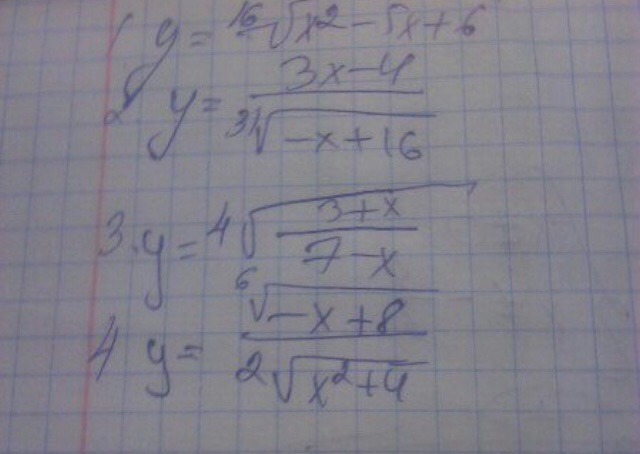 1 y = ¹⁶√x² - 5x + 6
2 y = 3x - 4
³¹√-x + 16
3. y = ⁴√3 + x
7 - x
4 y = ⁶√-x + 8
²√x² + 4